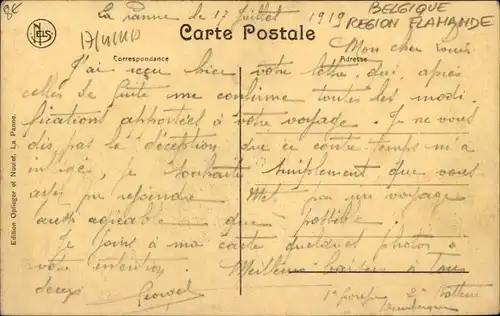 8€
La Panne le 17 Juillet 1919
BELGIQUE
REGION FLAMANDE
NELS
17/4/1110
Carte Postale
Mon cher Louis
Correspondance
Adresse
J'ai reçu hier votre lettre, qui, après
celles de suite me confirme toutes les modi-
fications apportées à votre voyage. Je ne vous
dis pas la déception que ce contre-temps m'a
infligé, je souhaite simplement que vous
me rejoindre par une voyage
aussi agréable que possible.
Je joins à ma carte quelques photos à
votre intention. Meilleurs baisers à Tous
deux Georges
1er groupe 2e Batterie
Edition Opliger et Nouret, La Panne.